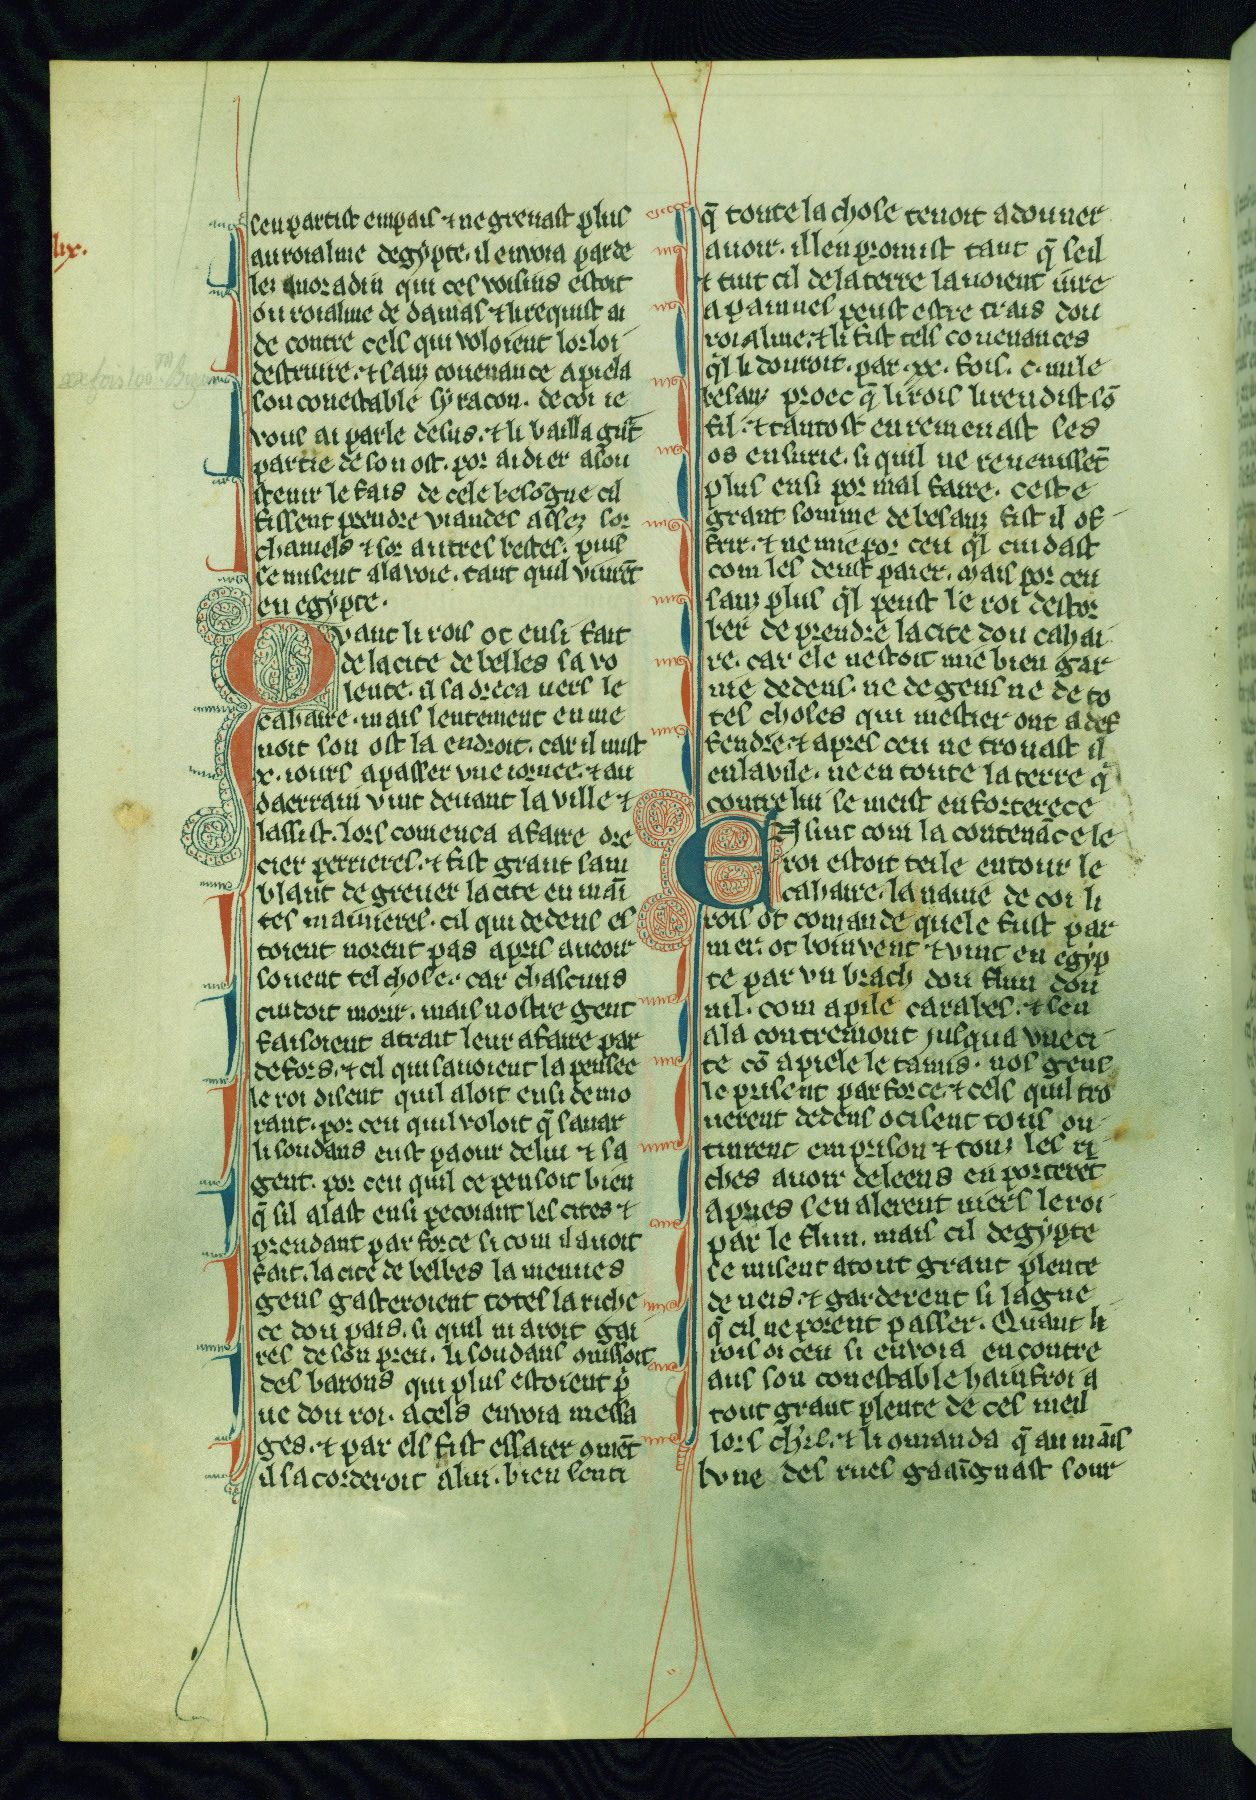 lix.
sen partist em pais ⁊ ne grevast plus
au roialme degypte. il envoia par de
lez noradin qui ces voisins estoit
ou roialme de damas ⁊ li requist ai
de contre cels qui voloient lor loi
destruire. ⁊ sanz couenance apiela
son conestable syracon. de coi ie
vous ai parle desus. ⁊ li bailla gr̃t
partie de son ost. por aidier a sou
stenir le fais de cele besoĩgne cil
fissent prendre viandes assez sor
chamels ⁊ sor autres bestes. puis
se misent a la voie. tant quil vinrẽt
en egypte.
Quant li rois ot ensi fait
de la cite de belbes sa vo
lente. il sa dreca uers le
cahaire. mais lentement en me
noit son ost la endroit. car il mist
x. iours a passer vne iornee. ⁊ au
daerrain vint deuant la ville ⁊
lassist. lors comenca a faire dre
cier perrieres. ⁊ fist grant sam
blant de greuer la cite en maĩ
tes mainieres. cil qui dedens es
toient norent pas apris aueoir
souent tel chose. car chascuns
cuidoit morir. mais nostre gent
faisoient atrait leur afaire par
defors. ⁊ cil qui sauoient la pensee
le roi disent quil aloit ensi demo
rant. por ceu quil voloit q̃ sauar
li soudans eust paour de lui ⁊ sa
gent. por ceu quil ce pensoit bien
q̃ sil alast ensi pecoiant les cites ⁊
prendant par force si com il auoit
fait. la cite de belbes la menues
gens gasteroient totes la riche
ce dou pais. si quil ni aroit gai
res de son preu. li soudans
des barons qui plus estoient p̃
ue dou roi. a cels envoia messa
ges. ⁊ par els fist essaier omẽt
il sa corderoit a lui. bien senti
q̃ toute la chose tenoit a donner
auoir. il len promist tant q̃ seil
⁊ tuit cil de la terre lauoient iure
a painnes peust estre trais dou
roialme. ⁊ li fist tels couenances
q̃l li donroit. par .xx. fois. c. mile
besanz proec q̃ li rois li rendist sõ
fil. ⁊ tantost en remenast ses
os en surie. si quil ne reuenissẽt
plus ensi por mal faire. ceste
grant somme de besanz fist il of
frir. ⁊ ne mie por ceu q̃l cuidast
com les deust paier. mais por ceu
sanz plus q̃l peust le roi destor
ber de prendre la cite dou cahai
re. car ele nestoit mie bien gar
nie dedens. ne de gens ne de to
tes choses qui mestier ont a def
fendre. ⁊ apres ceu ne trouast il
en la vile. ne en toute la terre q̃
contre lui se meist en forterece
Ensint com la contenãce le
roi estoit teile entour le
cahaire. la nauie de coi li
rois ot comande quele fust par
mer. ot boin vent ⁊ vint en egyp
te par vn brach dou flun dou
nil. com apile carabes. ⁊ sen
ala contremont jusqua vne ci
te cõ apiele le tamis. nos gens
le prisent par force. ⁊ cels quil tro
uerent dedens ocisent tous ou
tinrent em prison ⁊ touz les ri
ches auoir deleens en porterẽt
apries sen alerent uiers le roi
par le flun. mais cil degypte
se misent atout grant plente
de neis. ⁊ garderent si lague
q̃ cil ne porent passer. Quant li
rois oi ceu si envoia encontre
aus son conestable hainfroi a
tout grant plente de ces meil
lors ch'rs. ⁊ li omanda q̃ au mãis
lvne des rues gaaĩgnast sour